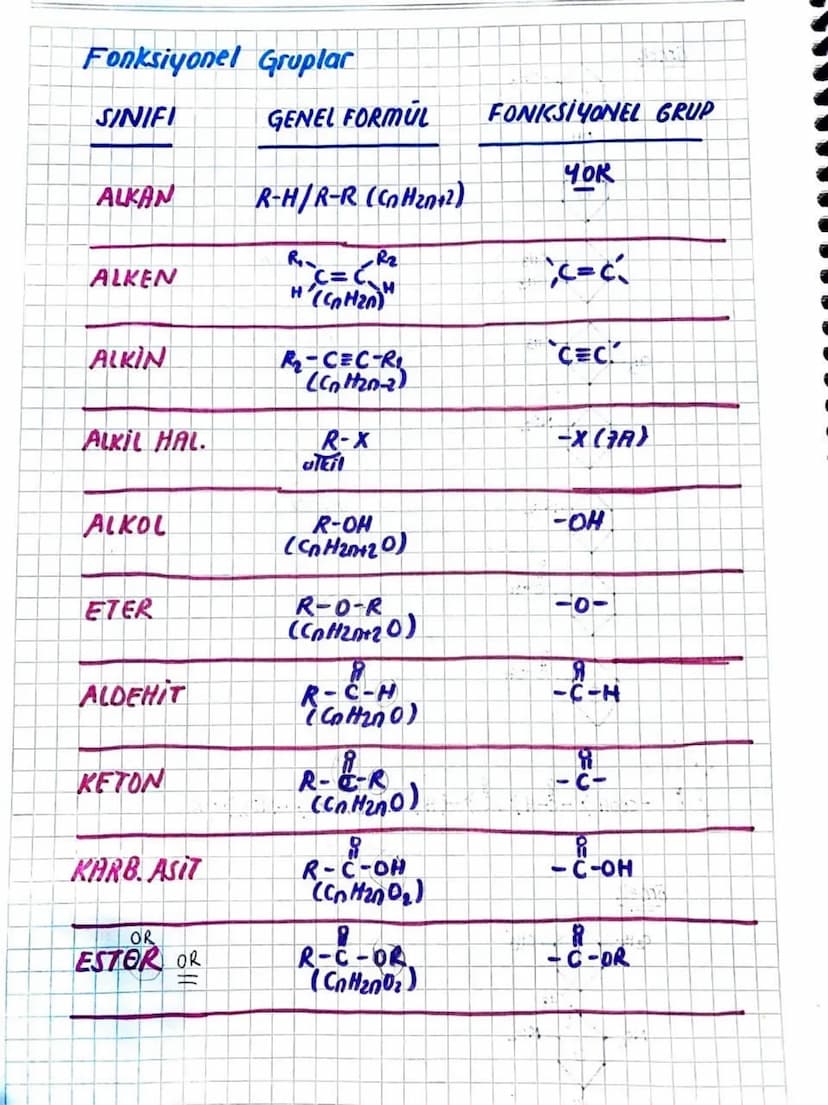 Fonksiyonel Gruplar
SINIFI GENEL FORMÜL FONKSİYONEL GRUP
ALKAN R-H/R-R (CnH2n+2) YOK
ALKEN R₁ R₂ C=C H H (CnH2n) C=C
ALKİN R₂-C≡C-R₁ C≡C
(CnH2n-2)
ALKİL HAL. R-X -X (7A)
alkil
ALKOL R-OH -OH
(CnH2n+2O)
ETER R-O-R -O-
(CnH2n+2O)
O O
ALDEHİT R-C-H -C-H
(CnH2nO)
O O
KETON R-C-R -C-
(CnH2nO)
O O
KARB. ASİT R-C-OH -C-OH
(CnH2nO₂)
OR O O
ESTER OR R-C-OR -C-OR
(CnH2nO₂)